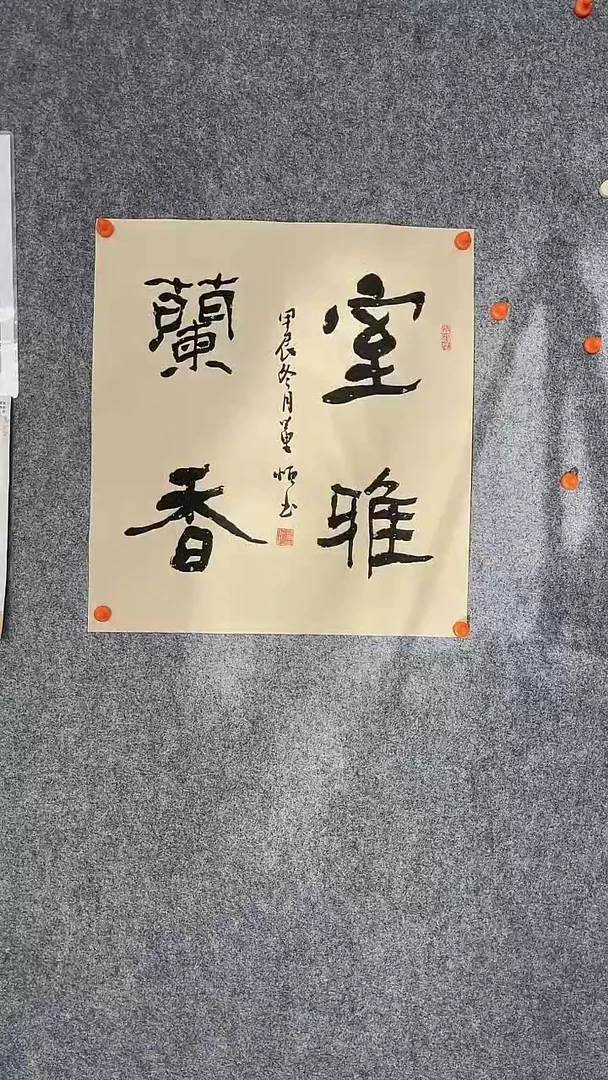 室雅
蘭香
甲辰冬月董恒书